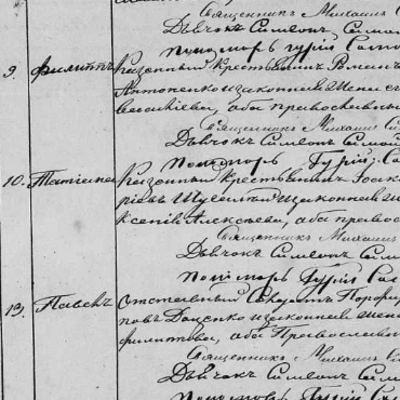 Священникъ Михаилъ С
Дьячокъ Симеонъ Симо
Пономарь Гурій Сам
9. Филиппъ Казенный крестьянинъ Роман
Антоненко и законная жена е
Васильева, оба православны
Священникъ Михаилъ Си
Дьячокъ Симеонъ Симо
Пономарь Гурій Са
10. Татіана Казенный крестьянинъ
и законная ж
Ксенія Алексѣева, оба право
Священникъ Михаилъ
Дьячокъ Симеонъ Сим
Пономарь Гурій Сам
13. Павелъ Отставный Порфир
повъ Доценко и законная жена
Филиппова, оба Православны
Священникъ Михаилъ
Дьячокъ Симеонъ Сим
Пономарь Гурій Са